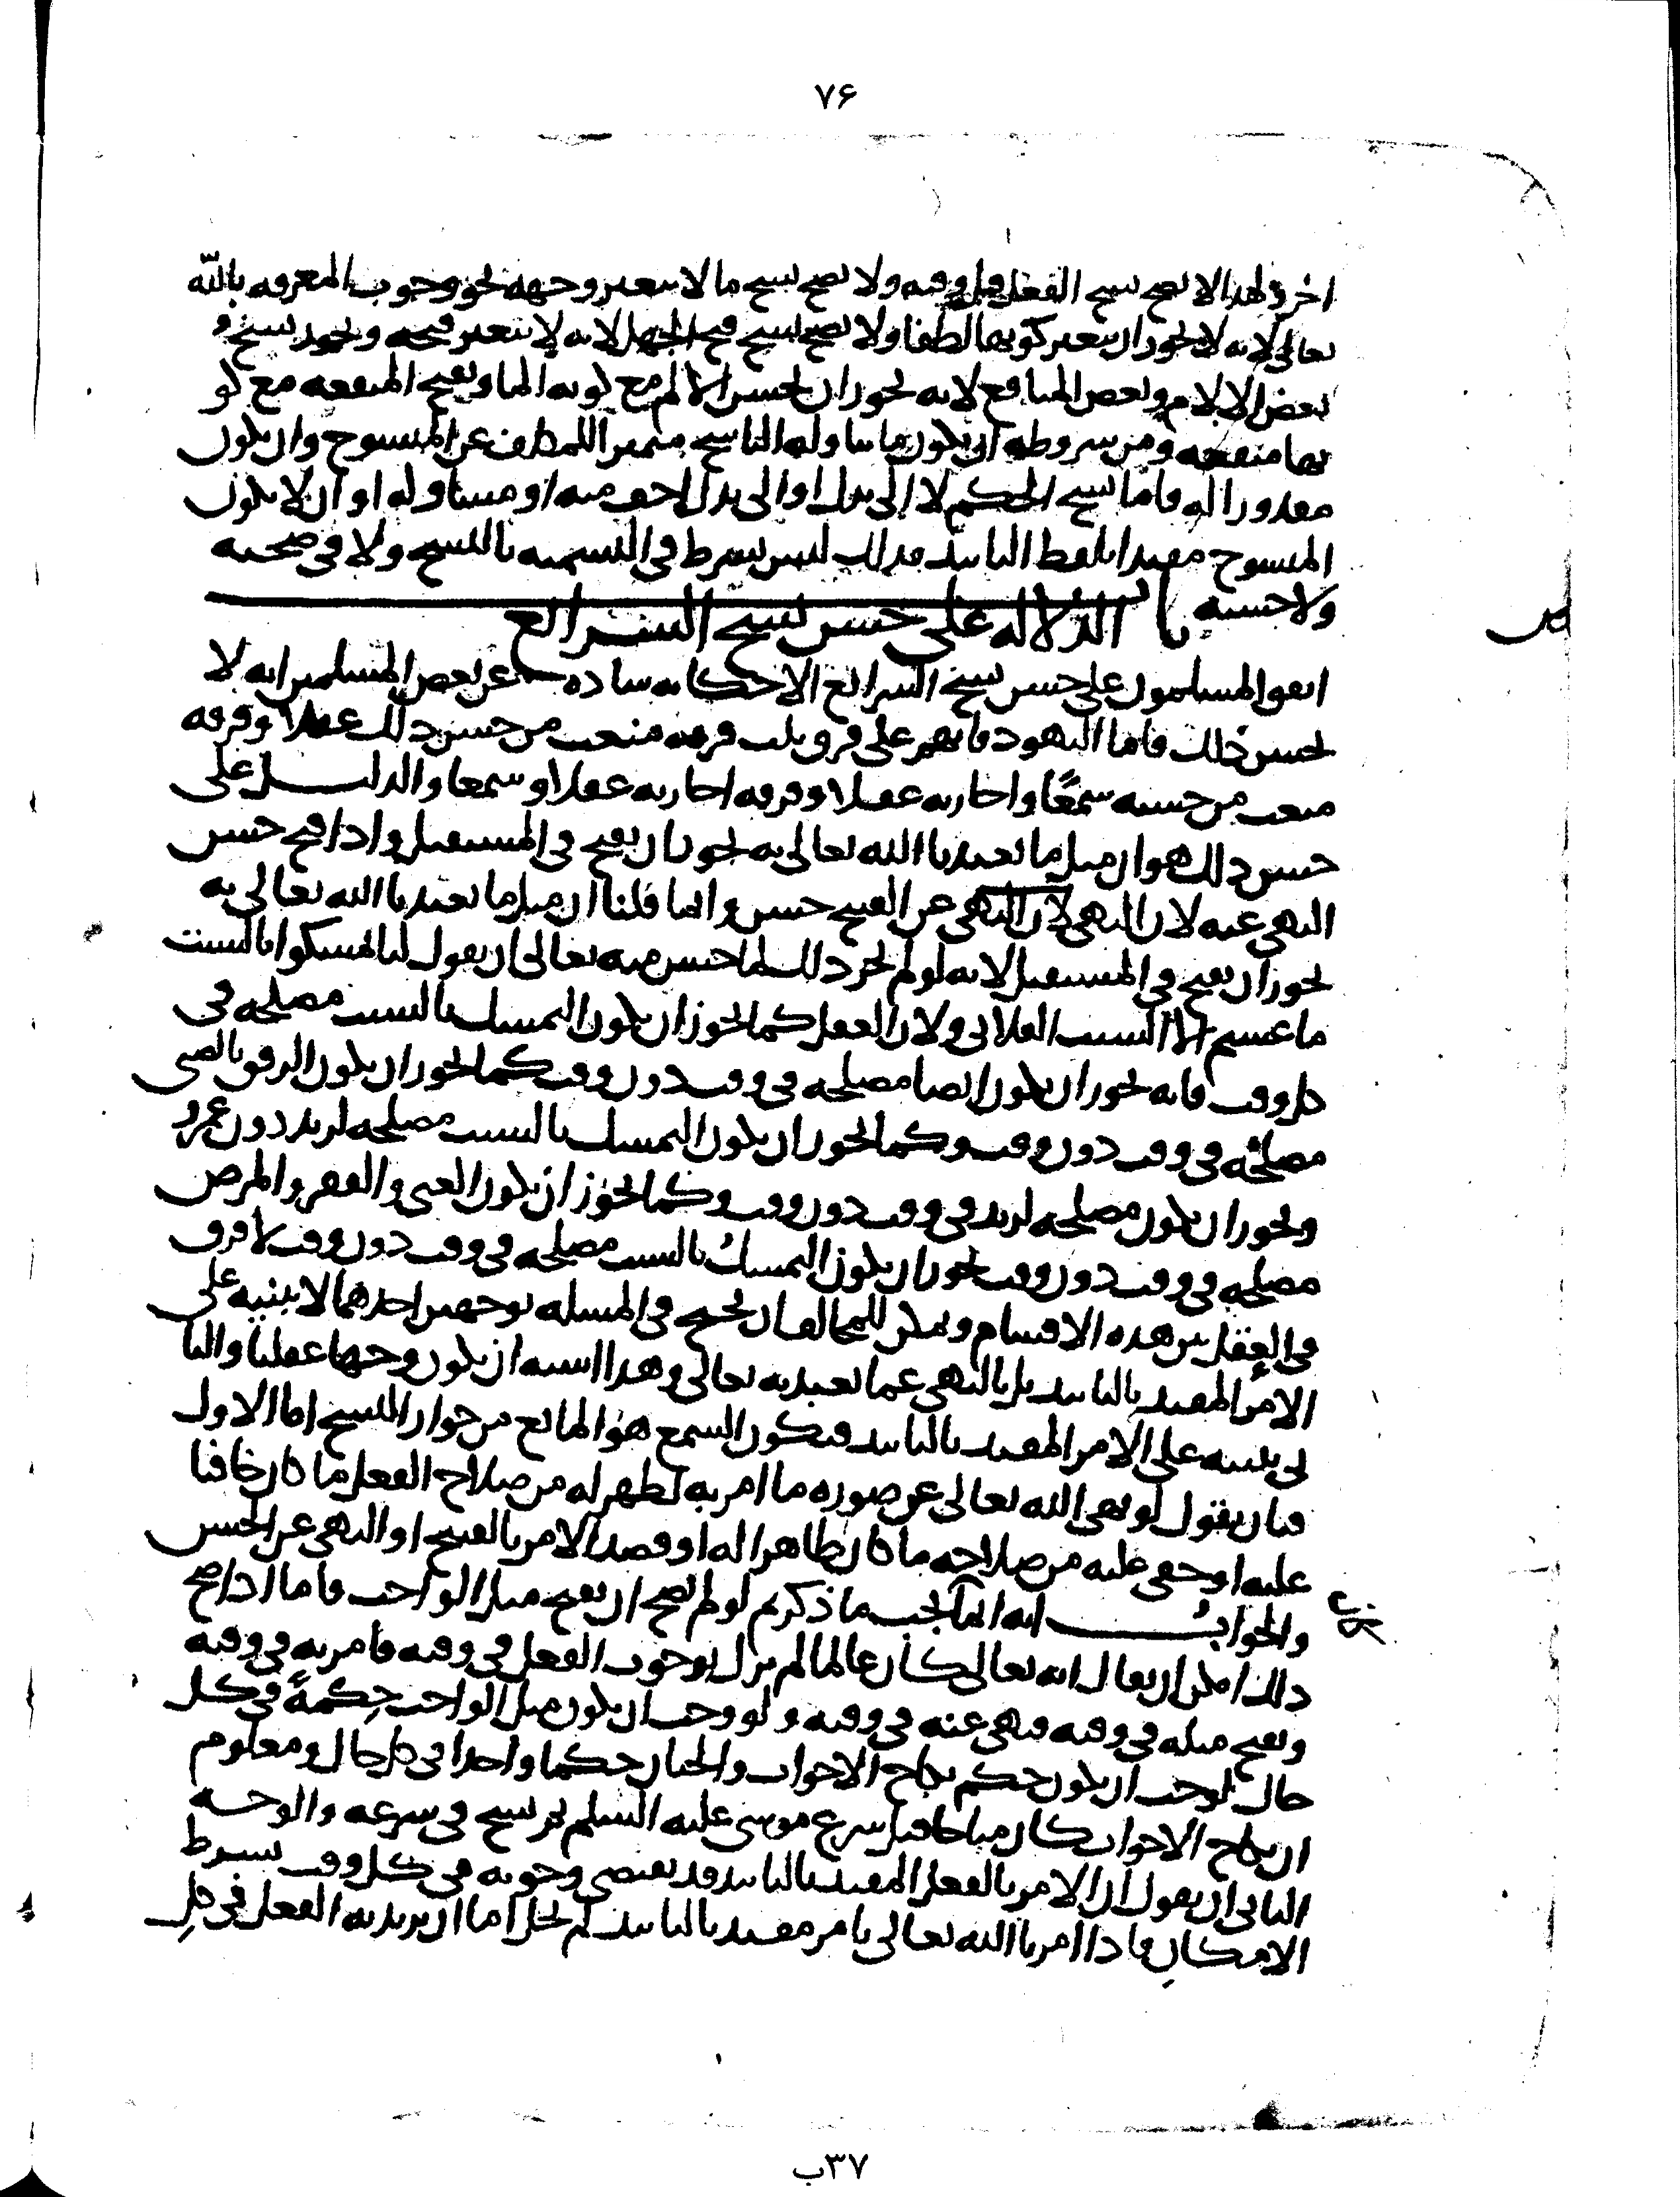 ٧۶
اخر ولهذا لا يصح نسخ الفعل قبل وقته ولا يصح نسخ ما لا يتغير وجهه نحو وجوب المعرفه بالله
تعالى لانه لا يجوز ان يتغير كونها لطفا ولا يصح نسخ قبح الجهل لانه لا يتغير قبحه ويجوز نسخ
بعض الالام وبعض المنافع لانه يجوز ان يحسن الالم مع كونه الما ويقبح المنفعه مع كو
نها منفعه ومن شروطه ان يكون ما تناوله الناسخ متميزا للمكلف عن المنسوخ وان يكون
مقدورا له فاما نسخ الحكم لا الى بدل او الى بدل اخف منه او مساو له او ان لا يكون
المنسوخ مقيدا بلفظ التابيد فذلك ليس بشرط في التسميه بالنسخ ولا في صحته
ولا حسنه باب الدلاله على حسن نسخ الشرائع
اتفق المسلمون على حسن نسخ الشرائع الا حكايه شاذه عن بعض المسلمين انه لا
يحسن ذلك فاما اليهود فانهم على فرق ثلث فرقه منعت من حسن ذلك عقلا وفرقه
منعت من حسنه سمعًا واجازته عقلا وفرقه اجازته عقلا وسمعا والدليل على
حسن ذلك هو ان مثل ما تعبدنا الله تعالى به يجوز ان يقبح في المستقبل واذا قبح حسن
النهي عنه لان النهي لان النهي عن القبيح حسن وانما قلنا ان مثل ما تعبدنا الله تعالى به
يجوز ان يقبح في المستقبل لانه لو لم يجز ذلك لما حسن منه تعالى ان يقول لنا تمسكوا بالسبت
ما عشتم الا السبت الفلاني ولان العقل كما يجوز ان يكون التمسك بالسبت مصلحه في
كل وقت فانه يجوز ان يكون ايضا مصلحه في وقت دون وقت كما يجوز ان يكون الرفق بالصبي
مصلحه في وقت دون وقت وكما يجوز ان يكون التمسك بالسبت مصلحه لزيد دون عمرو
ويجوز ان يكون مصلحه لزيد في وقت دون وقت وكما يجوز ان يكون الغنى والفقر والمرض
مصلحه في وقت دون وقت يجوز ان يكون التمسك بالسبت مصلحه في وقت دون وقت لا فرق
في العقل بين هذه الاقسام ويمكن للمخالف ان يحتج في المسله بوجهين احدهما لا يبنيه على
الامر المقيد بالتابيد بل بالنهي عما تعبد به تعالى وهذا اشبه ان يكون وجها عقليا والثا
ني يبنيه على الامر المقيد بالتابيد فيكون السمع هو المانع من جواز النسخ اما الاول
فبان يقول لو نهى الله تعالى عن صوره ما امر به لظهر له من صلاح الفعل ما كان خافيا
عليه او خفي عليه من صلاحه ما كان ظاهرا له او قصد الامر بالقبيح او النهي عن الحسن
والجوابُ انه انما يجب ما ذكرتم لو لم يصح ان يقبح مثل الواجب فاما اذا صح
ذلك امكن ان يقال انه تعالى كان عالما لم يزل بوجوب الفعل في وقته فامر به في وقته
وبقبح مثله في وقته فنهى عنه في وقته ولو وجب ان يكون مثل الواجب حِكمةً في كل
حال لوجب ان يكون حكم نكاح الاخوات والختان حكما واحدا في كل حال ومعلوم
ان نكاح الاخوات كان مباحا قبل شرع موسى عليه السلم ثم نسخ في شرعه والوجه
الثاني ان يقول ان الامر بالفعل المقيد بالتابيد قد يقتضي وجوبه في كل وقت بشرط
الامكانِ فاذا امرنا الله تعالى بامر مقيد بالتابيد لم يخل اما ان يريد به الفعل في كلِ
٣٧ب